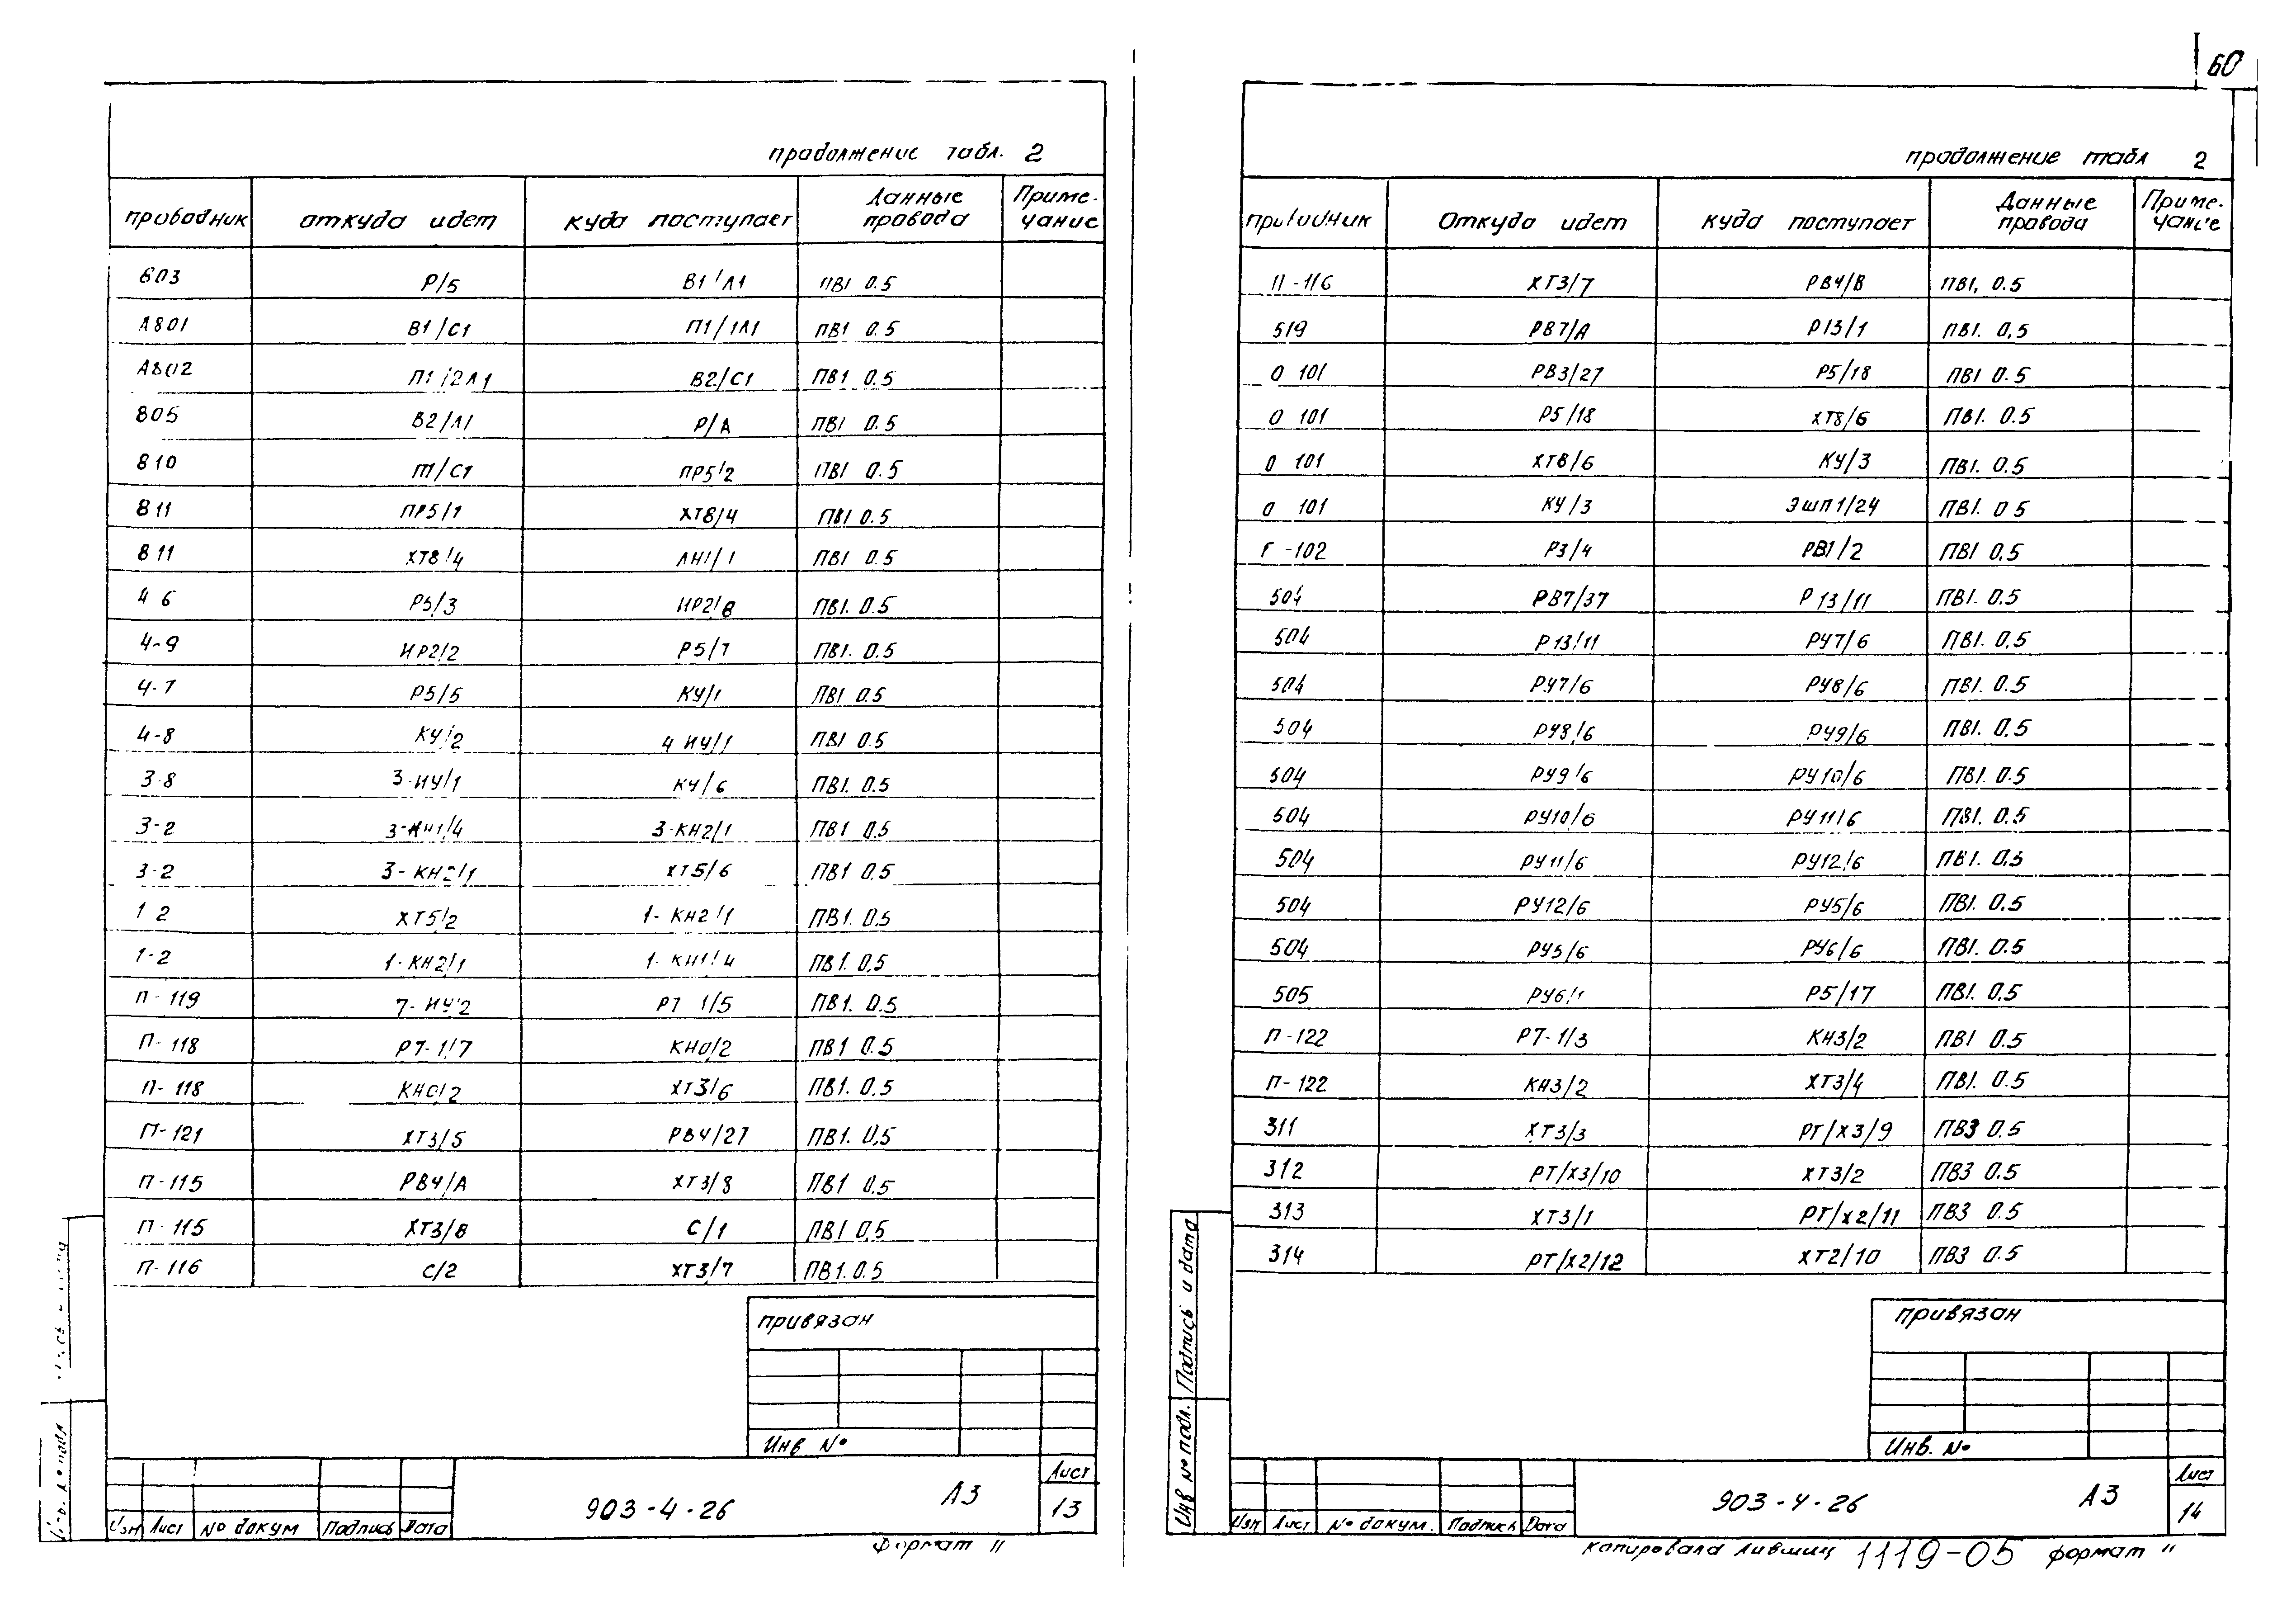 60
продолжение табл. 2
проводник откуда идет куда поступает Данные провода Приме-чание
803 Р/5 В1/Л1 ПВ1 0.5
А801 В1/С1 П1/1Л1 ПВ1 0.5
А802 П1/2Л1 В2/С1 ПВ1 0.5
805 В2/Л1 Р/А ПВ1 0.5
810 П1/С1 ПР5/2 ПВ1 0.5
811 ПР5/1 ХТ8/4 ПВ1 0.5
811 ХТ8/4 ЛН1/1 ПВ1 0.5
4 6 Р5/3 ИР2/8 ПВ1. 0.5
4-9 ИР2/2 Р5/7 ПВ1. 0.5
4-7 Р5/5 КУ/1 ПВ1 0.5
4-8 КУ/2 4 ИУ/1 ПВ1 0.5
3-8 3-ИУ/1 КУ/6 ПВ1. 0.5
3-2 3-КН1/4 3-КН2/1 ПВ1 0.5
3-2 3-КН2/1 ХТ5/6 ПВ1 0,5
1 2 ХТ5/2 1-КН2/1 ПВ1. 0,5
1-2 1-КН2/1 1-КН1/4 ПВ1. 0,5
П-119 7-ИУ/2 РТ 1/5 ПВ1. 0.5
П-118 РТ-1/7 КН0/2 ПВ1 0.5
П-118 КН0/2 ХТ3/6 ПВ1. 0,5
П-121 ХТ3/5 РВ4/27 ПВ1. 0,5
П-115 РВ4/А ХТ3/8 ПВ1 0.5
П-115 ХТ3/8 С/1 ПВ1 0,5
П-116 С/2 ХТ3/7 ПВ1. 0.5
привязан
Инв №
Изм Лист № докум Подпись Дата
903-4-26 А3
Лист
13
Формат 11
продолжение табл 2
проводник Откуда идет куда поступает Данные провода Приме-чание
П-116 ХТ3/7 РВ4/В ПВ1, 0.5
519 РВ7/А Р13/1 ПВ1. 0,5
0 101 РВ3/27 Р5/18 ПВ1 0.5
0 101 Р5/18 ХТ8/6 ПВ1. 0.5
0 101 ХТ8/6 КУ/3 ПВ1. 0.5
0 101 КУ/3 ЭШП1/24 ПВ1. 0 5
-102 Р3/4 РВ1/2 ПВ1 0,5
504 РВ7/37 Р13/11 ПВ1. 0.5
504 Р13/11 РУ7/6 ПВ1. 0,5
504 РУ7/6 РУ8/6 ПВ1. 0.5
504 РУ8/6 РУ9/6 ПВ1. 0,5
504 РУ9/6 РУ10/6 ПВ1. 0.5
504 РУ10/6 РУ11/6 ПВ1. 0.5
504 РУ11/6 РУ12/6 ПВ1. 0,5
504 РУ12/6 РУ5/6 ПВ1. 0,5
504 РУ5/6 РУ6/6 ПВ1. 0.5
505 РУ6/1 Р5/17 ПВ1. 0.5
П-122 РТ-1/3 КН3/2 ПВ1 0.5
П-122 КН3/2 ХТ3/4 ПВ1. 0.5
311 ХТ3/3 РТ/Х3/9 ПВ3 0.5
312 РТ/Х3/10 ХТ3/2 ПВ3 0.5
313 ХТ3/1 РТ/Х2/11 ПВ3 0.5
314 РТ/Х2/12 ХТ2/10 ПВ3 0.5
привязан
Инв. №
Подпись и дата
Инв № подл.
Изм Лист № докум. Подпись Дата
903-4-26 А3
Лист
14
копировала Лившиц 1119-05 формат 11